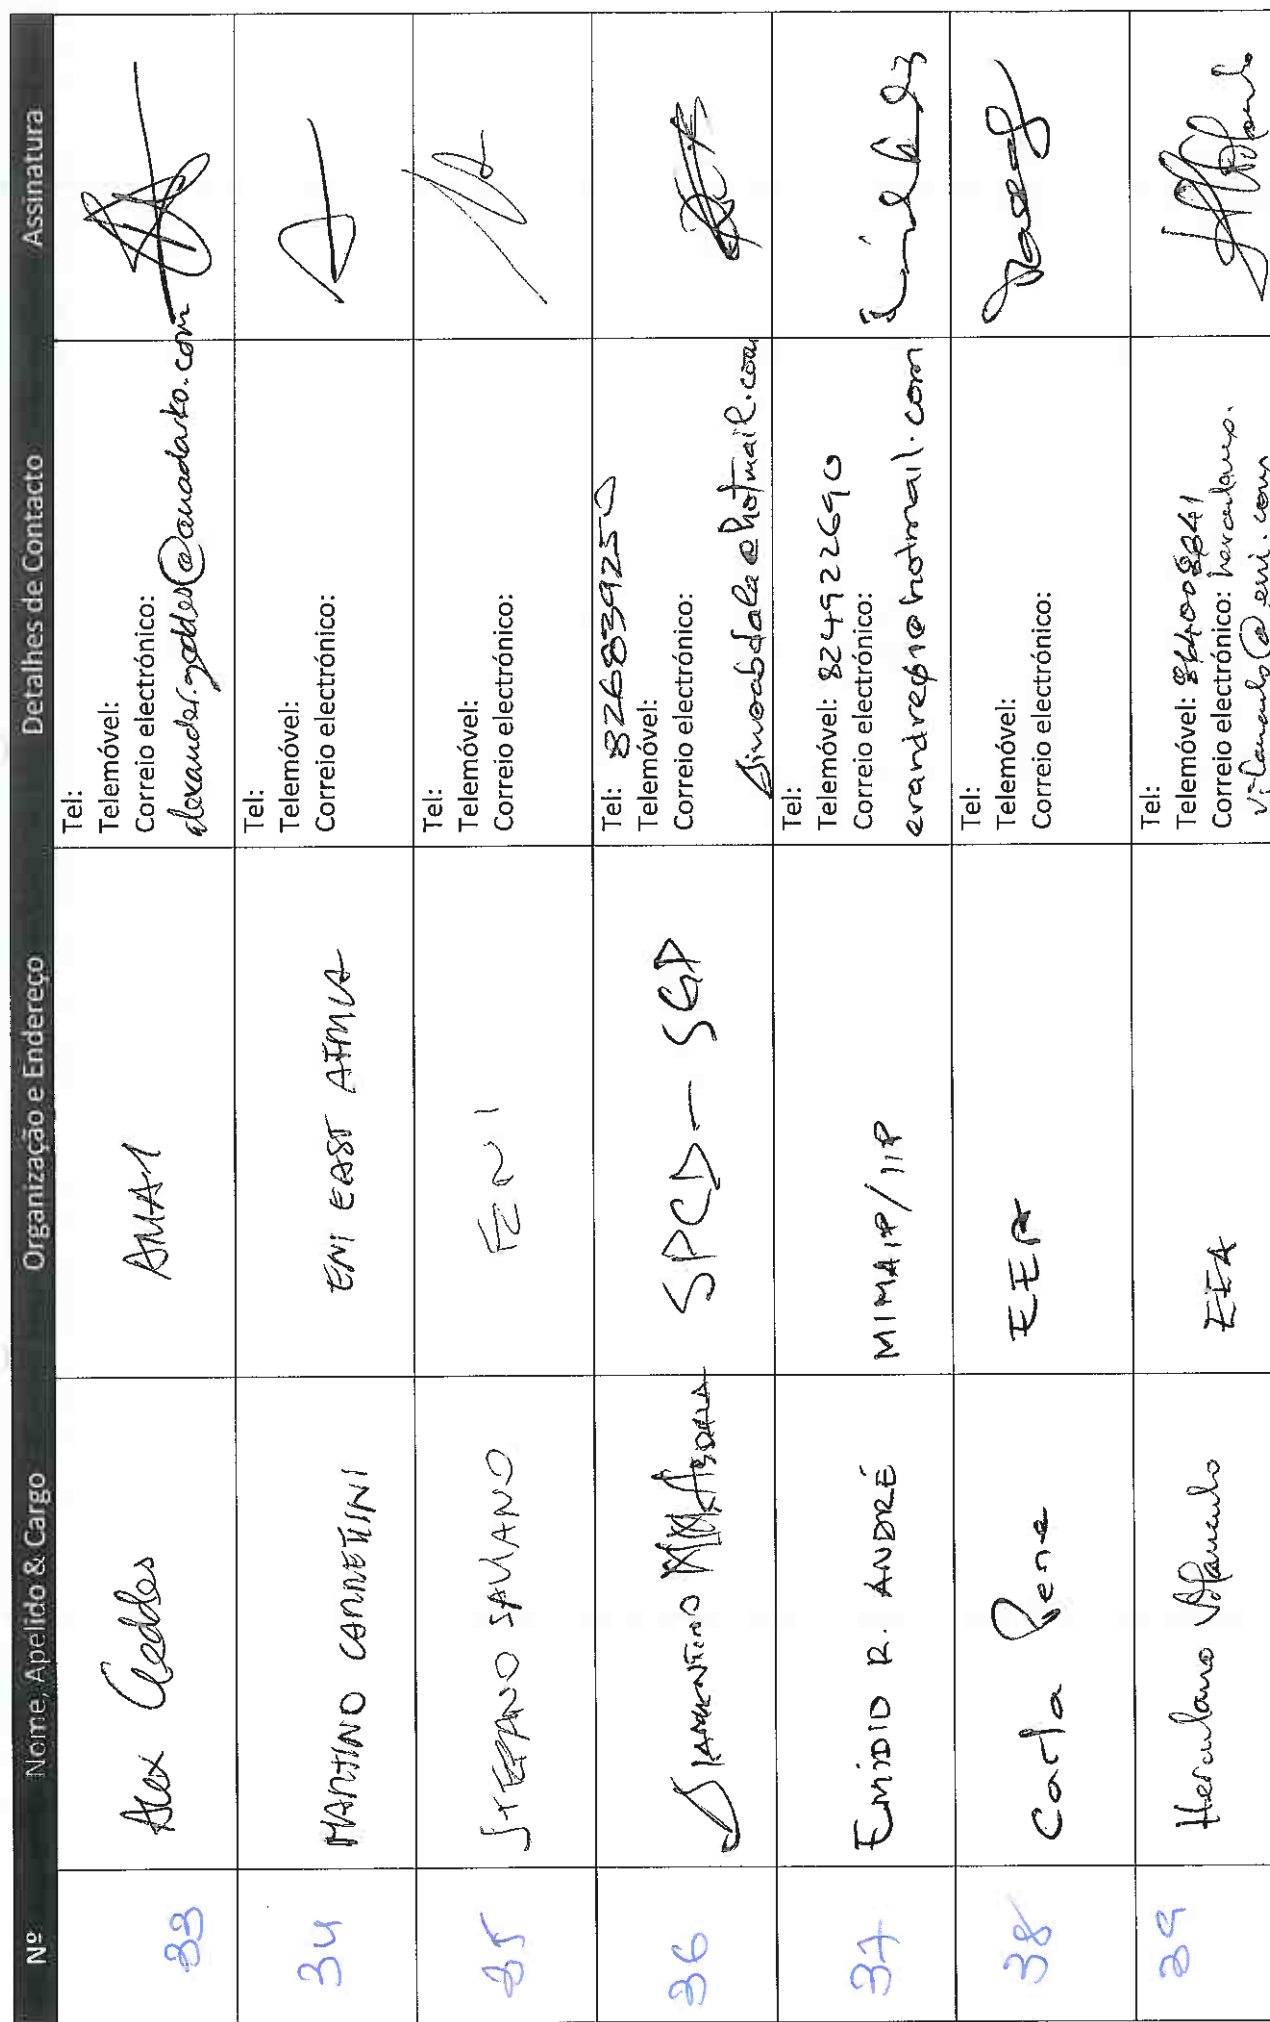 Nº Nome, Apelido & Cargo Organização e Endereço Detalhes de Contacto Assinatura
33 Alex Geddes AMA1 Tel:
Telemóvel:
Correio electrónico:
alexander.geddes@anadarko.com
34 MARTINO CARRETTINI ENI EAST AFRICA Tel:
Telemóvel:
Correio electrónico:
35 STEFANO SALVIANO ENI Tel:
Telemóvel:
Correio electrónico:
36 SPCD - SGP Tel: 826839250
Telemóvel:
Correio electrónico:
37 Emídio R. ANDRÉ MIMAIP/IIP Tel:
Telemóvel: 824922690
Correio electrónico:
38 Carla Pene EEA Tel:
Telemóvel:
Correio electrónico:
39 Herculano Vilanculo EEA Tel:
Telemóvel:
Correio electrónico: herculano.
vilanculo@eni.com